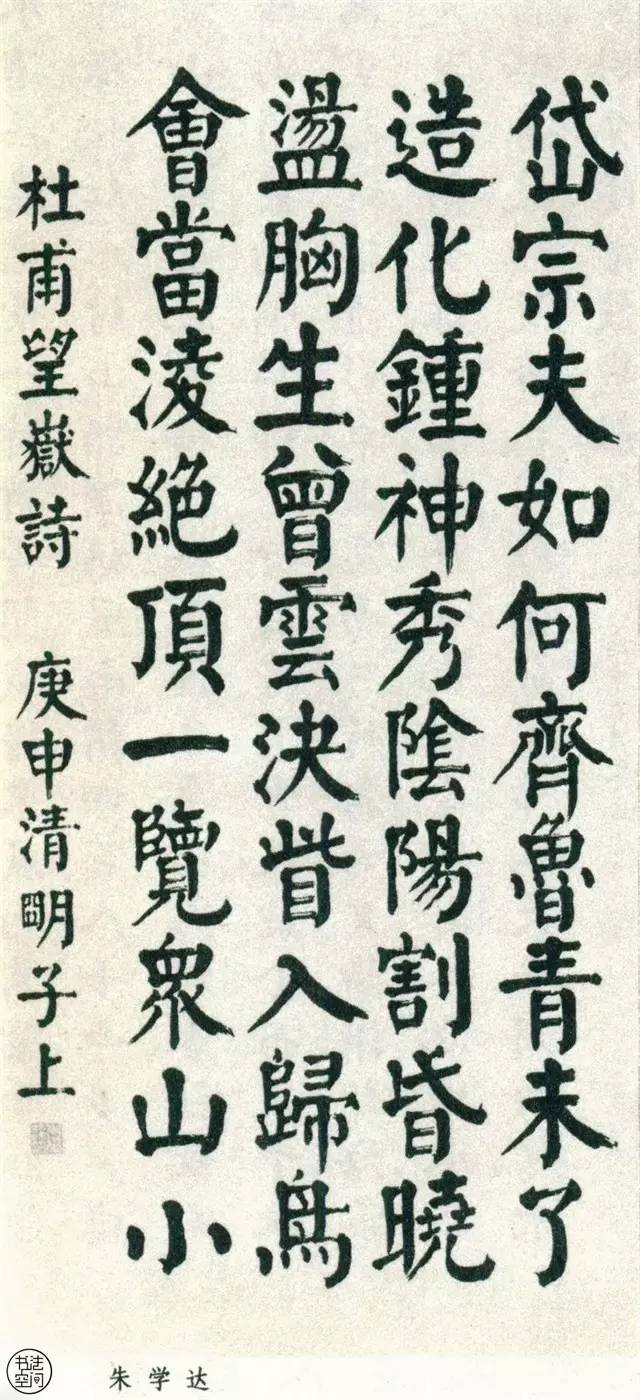 岱宗夫如何齊魯青未了
造化鍾神秀陰陽割昏曉
盪胸生曾雲決眥入歸鳥
會當淩絕頂一覽衆山小
杜甫望嶽詩 庚申清明子上
朱学达
书法空间